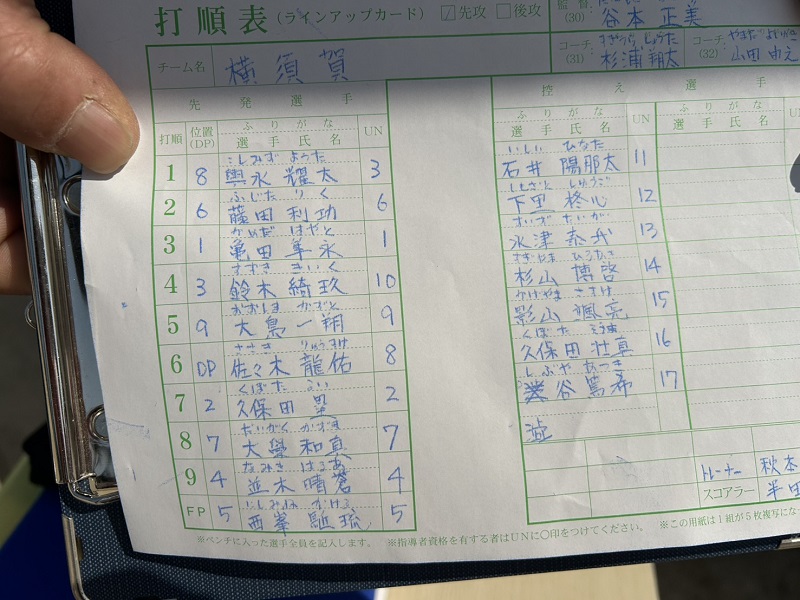 打順表 (ラインアップカード) ☑先攻 □後攻
監督 (30) 谷本 正美
チーム名 横須賀
コーチ (31) すぎうら しょうた 杉浦 翔太 コーチ (32) 山田
先発選手
打順 位置(DP) ふりがな 選手氏名 UN
1 8 こしみず ようた 輿水 耀太 3
2 6 ふじた りく 藤田 利功 6
3 1 かめだ はやと 亀田 隼永 1
4 3 すずき きいく 鈴木 綺玖 10
5 9 おおしま かずと 大島 一翔 9
6 DP ささき りゅうすけ 佐々木 龍佑 8
7 2 くぼた るい 久保田 塁 2
8 7 だいがく かずま 大學 和真 7
9 4 なみき はるあ 並木 晴蒼 4
FP 5 にしみね かける 西峯 5
控え選手
ふりがな 選手氏名 UN ふりがな 選手氏名
いしい ひなた 石井 陽那太 11
しもさと しゅうご 下里 柊心 12
すいず たいが 水津 泰我 13
すぎやま ひろあき 杉山 博啓 14
かげやま そうすけ 影山 颯亮 15
くぼた そうま 久保田 壮真 16
しぶや あつき 谷 篤希 17
澁
トレーナー 秋本
スコアラー 半田
※ベンチに入った選手全員を記入します。 ※指導者資格を有する者はUNに○印をつけてください。 ※この用紙は1組が5枚複写にな